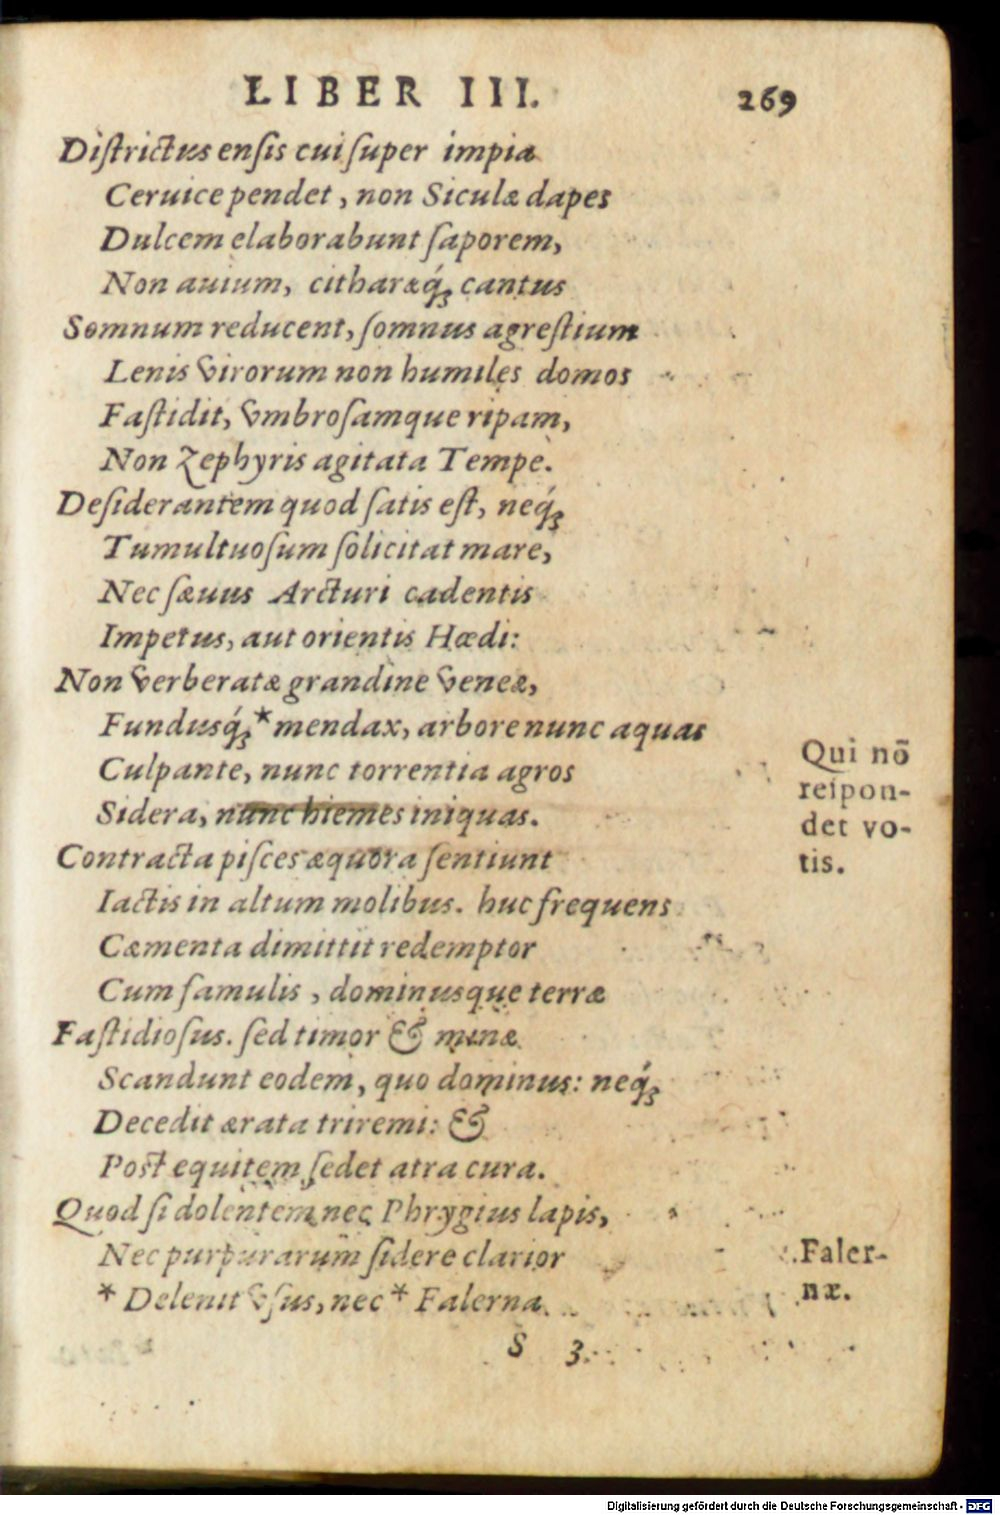 LIBER III. 269
Diſtrictus enſis cui ſuper impia
Ceruice pendet, non Siculæ dapes
Dulcem elaborabunt ſaporem,
Non auium, citharæq́ꝫ cantus
Somnum reducent, ſomnus agreſtium
Lenis virorum non humiles domos
Faſtidit, vmbroſamque ripam,
Non Zephyris agitata Tempe.
Deſiderantem quod ſatis eſt, neq́ꝫ
Tumultuoſum ſolicitat mare,
Nec ſæuus Arcturi cadentis
Impetus, aut orientis Hædi:
Non verberatæ grandine veneæ,
Fundusq́ꝫ * mendax, arbore nunc aquas
Culpante, nunc torrentia agros
Sidera, nunc hiemes iniquas.
Qui nō
reſpon-
det vo-
tis.
Contracta piſces æquora ſentiunt
Iactis in altum molibus. huc frequens
Cæmenta dimittit redemptor
Cum famulis, dominusque terræ
Faſtidioſus. ſed timor & minæ
Scandunt eodem, quo dominus: neq́ꝫ
Decedit ærata triremi: &
Poſt equitem ſedet atra cura.
Quod ſi dolentem nec Phrygius lapis,
Nec purpurarum ſidere clarior
* Delenit vſus, nec * Falerna
Faler-
næ.
S 3
Digitalisierung gefördert durch die Deutsche Forschungsgemeinschaft - DFG